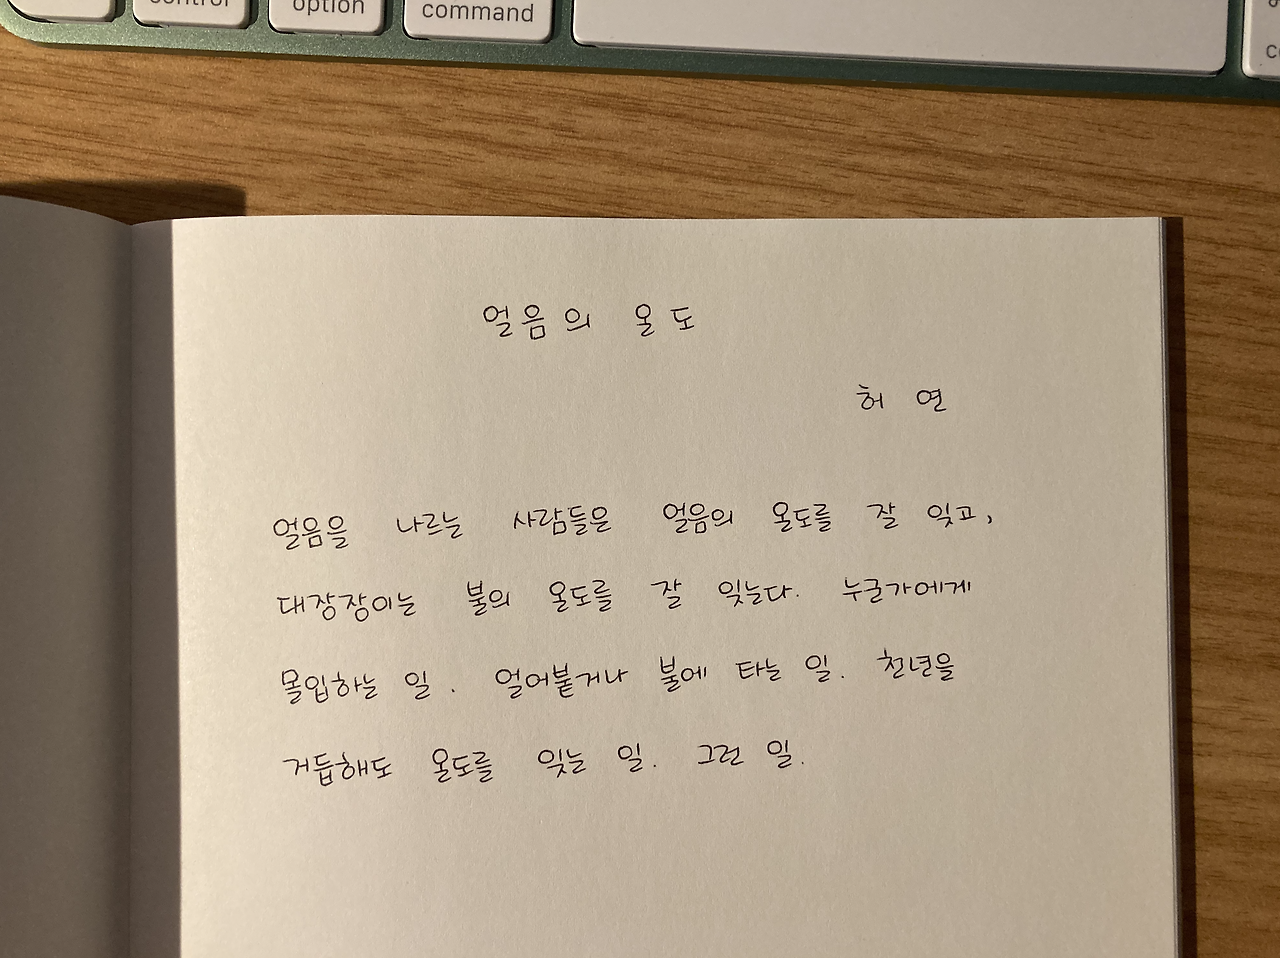 control
option
command
얼음의 온도
허 연
얼음을 나르는 사람들은 얼음의 온도를 잘 잊고,
대장장이는 불의 온도를 잘 잊는다. 누군가에게
몰입하는 일. 얼어붙거나 불에 타는 일. 천년을
거듭해도 온도를 잊는 일. 그런 일.